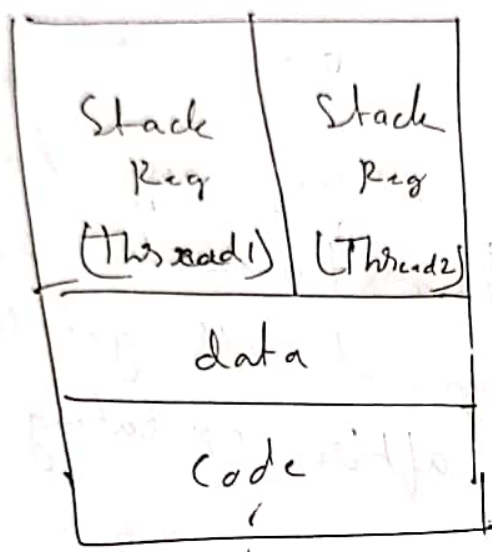 Stack
Reg
(Thread1)
Stack
Reg
(Thread2)
data
Code